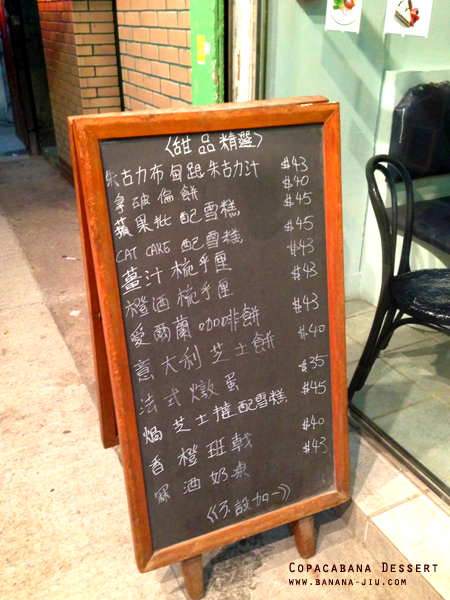 〈甜品精選〉
朱古力布甸跟朱古力汁 $43
拿破倫餅 $40
蘋果批配雪糕 $45
CAT CAKE 配雪糕 $45
薑汁梳乎厘 $43
橙酒梳乎厘 $43
愛爾蘭咖啡餅 $43
意大利芝士餅 $40
法式燉蛋 $35
焗芝士撻配雪糕 $45
香橙班戟 $40
酒奶凍 $43
《不設加一》
COPACABANA DESSERT
WWW.BANANA-JIU.COM